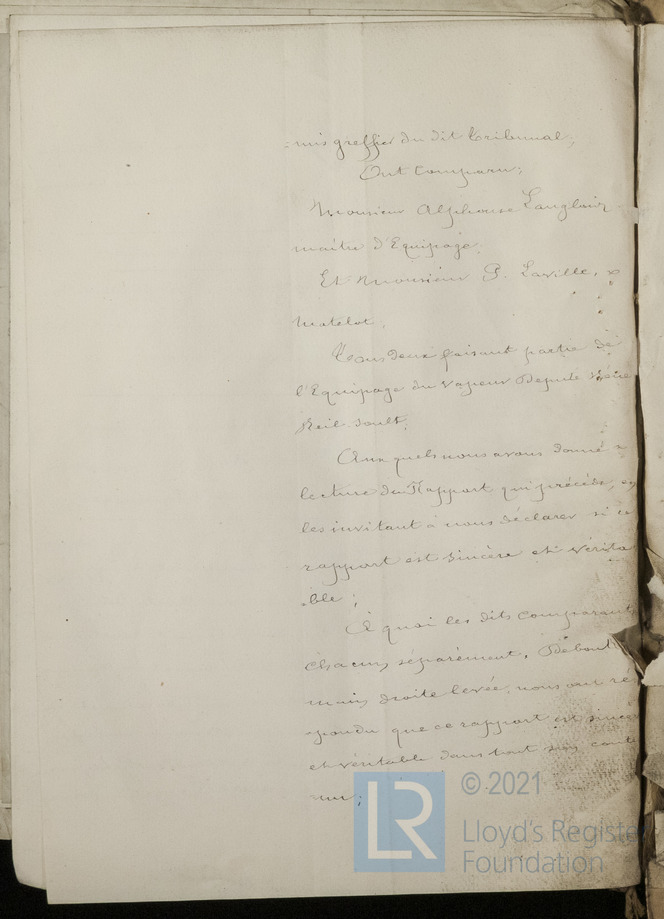 -mis greffier du dit tribunal,
Ont comparu;
Monsieur Alphonse Langlois
maître d'Equipage.
Et Monsieur P. Laville,
Matelot,
Tous deux faisant partie de
l'Equipage du vapeur Député
Aux quels nous avons donné
lecture du Rapport qui précède, en
les invitant à nous déclarer si ce
rapport est sincère et vérita
-ble;
A quoi les dits comparants
chacun séparément, Debout
main droite levée, nous ont ré
-pondu que ce rapport est sincère
et véritable dans tout son conte
nu;
LR
© 2021
Lloyd's Register
Foundation